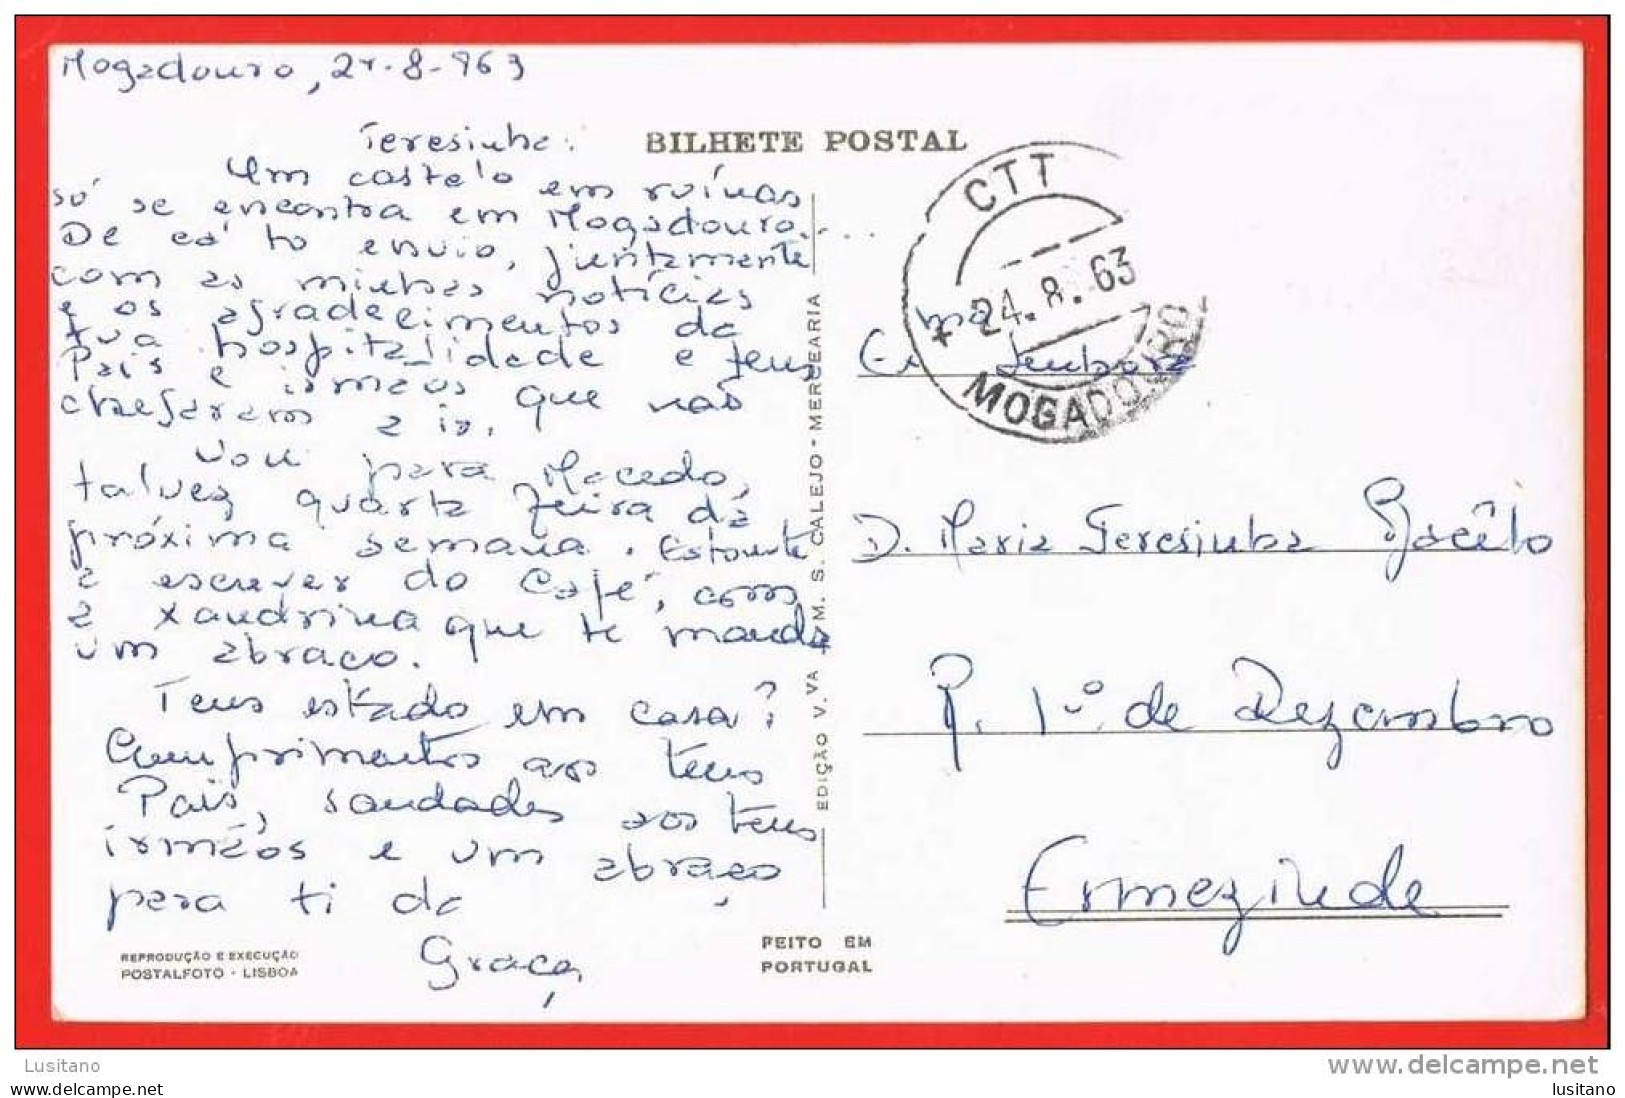 Mogadouro, 24-8-963
Teresinha:
Um castelo em ruínas
só se encontra em Mogadouro....
De cá to envio, juntamente
com as minhas notícias
e os agradecimentos da
tua hospitalidade e teus
Pais e irmãos que nas
chegaram a ir.
Vou para Macedo,
talvez quarta feira da
próxima semana. Estou-te
a escrever do Café, com
a Xandrina que te manda
um abraço.
Tens estado em casa?
Cumprimentos aos teus
Pais, saudades aos teus
irmãos e um abraço
para ti da
Graça
REPRODUÇÃO E EXECUÇÃO
POSTALFOTO - LISBOA
BILHETE POSTAL
EDIÇÃO V.VA M. S. CALEJO - MERCEARIA
FEITO EM
PORTUGAL
CTT
24. 8. 63
MOGADOURO
Exma Senhora
D. Maria Teresinha
R. 1º de Dezembro
Ermezinde
Lusitano
delcampe.net
delcampe.net
lusitano